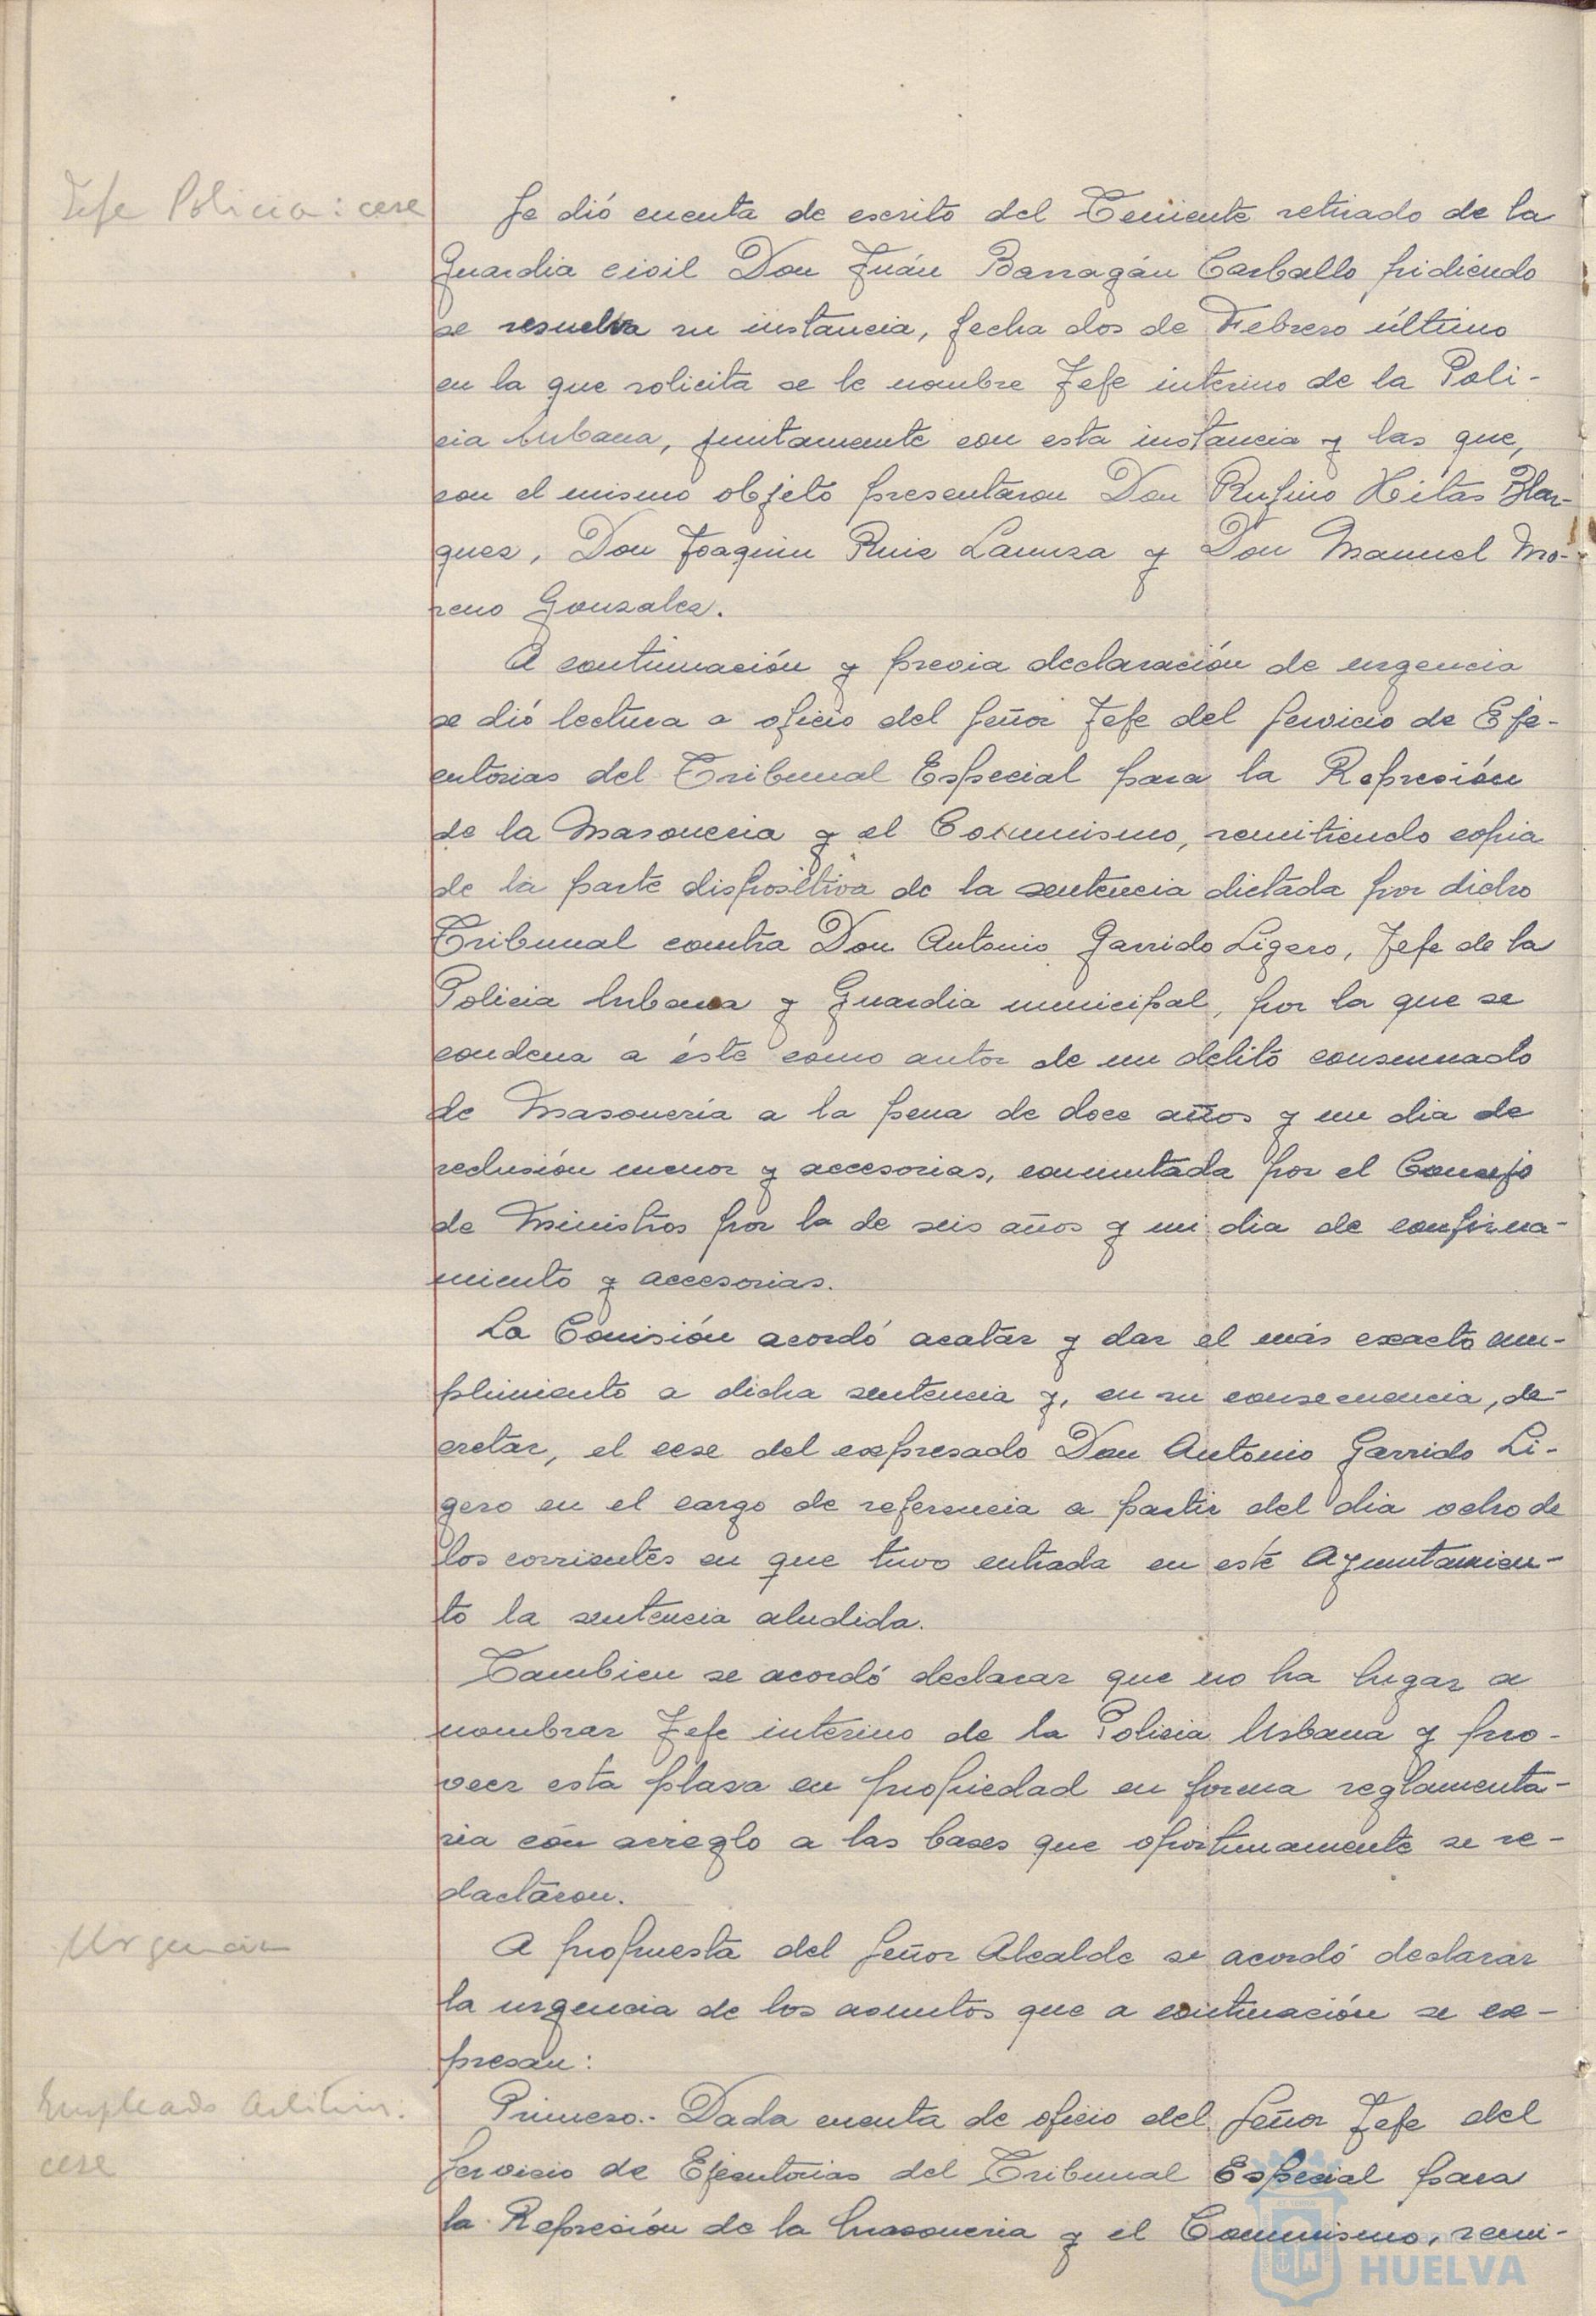 Jefe Policia: cese
Se dió cuenta de escrito del Teniente retirado de la
Guardia civil Don Juán Barragán Carballo pidiendo
se resuelva su instancia, fecha dos de Febrero último
en la que solicita se le nombre Jefe interino de la Poli-
cia Urbana, juntamente con esta instancia y las que,
con el mismo objeto presentaron Don Rufino Hitas Blar-
quez, Don Joaquin Ruiz Lanuza y Don Manuel Mo-
reno Gonzalez.
A continuación y previa declaración de urgencia
se dió lectura a oficio del Señor Jefe del Servicio de Eje-
cutorias del Tribunal Especial para la Represión
de la Masoneria y el Comunismo, remitiendo copia
de la parte dispositiva de la sentencia dictada por dicho
Tribunal contra Don Antonio Garrido Ligero, Jefe de la
Policia Urbana y Guardia municipal, por la que se
condena a éste como autor de un delito consumado
de Masonería a la pena de doce años y un dia de
reclusión menor y accesorias, conmutada por el Consejo
de Ministros por la de seis años y un dia de confina-
miento y accesorias.
La Comisión acordó acatar y dar el más exacto cum-
plimiento a dicha sentencia y, en su consecuencia, de-
cretar, el cese del expresado Don Antonio Garrido Li-
gero en el cargo de referencia a partir del dia ocho de
los corrientes en que tuvo entrada en este Ayuntamien-
to la sentencia aludida.
Tambien se acordó declarar que no ha lugar a
nombrar Jefe interino de la Policia Urbana y pro-
veer esta plaza en propiedad en forma reglamenta-
ria con arreglo a las bases que oportunamente se re-
dactaron.
Urgencia
A propuesta del Señor Alcalde se acordó declarar
la urgencia de los asuntos que a continuación se ex-
presan:
Empleado Arbitrios:
cese
Primero.- Dada cuenta de oficio del Señor Jefe del
Servicio de Ejecutorias del Tribunal Especial para
la Represión de la Masoneria y el Comunismo, remi-
HUELVA